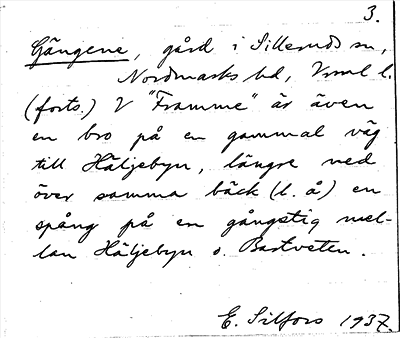 3.
Gängene, gård i Silleruds sn,
Nordmarks hd, Vrml l.
(forts.) V "Framme" är även
en bro på en gammal väg
till Häljebyn, längre ned
över samma bäck (l. å) en
spång på en gångstig mel-
lan Häljebyn o. Bastveten.
E. Silfors 1937.